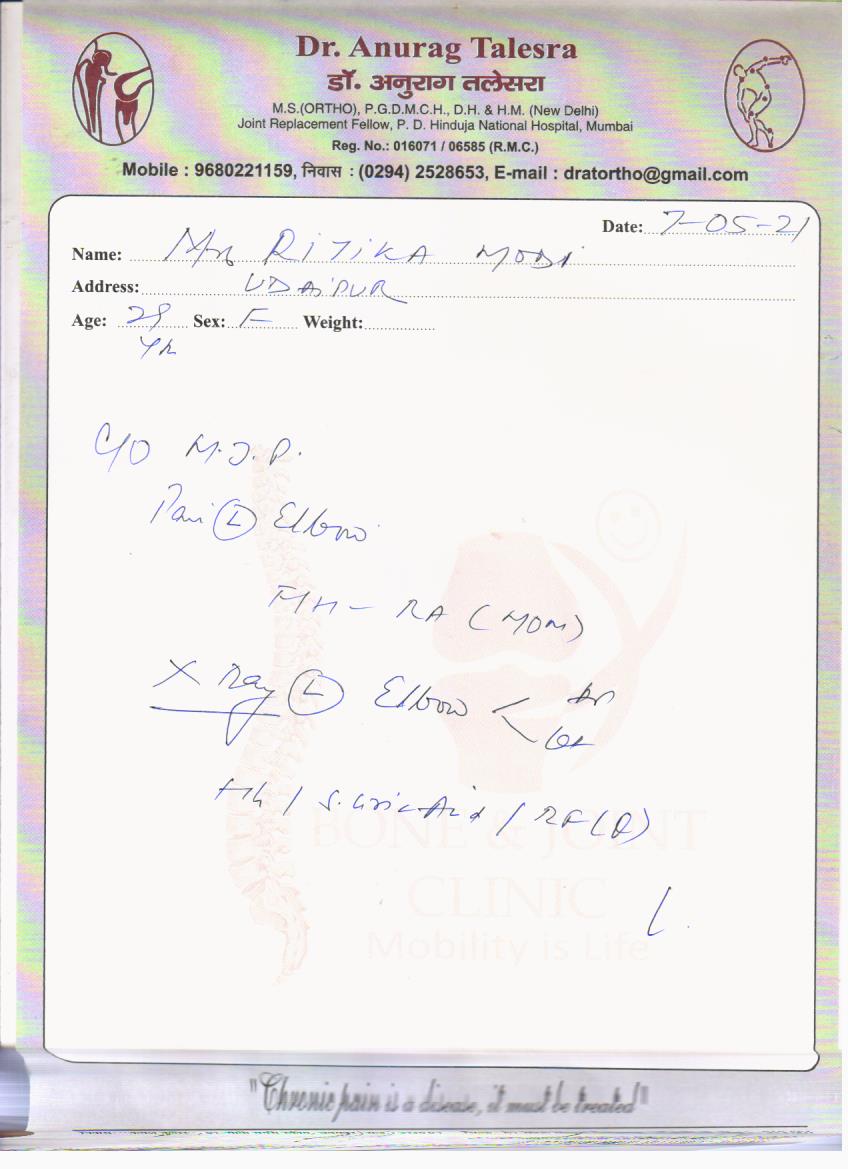 Dr. Anurag Talesra
डॉ. अनुराग तलेसरा
M.S.(ORTHO), P.G.D.M.C.H., D.H. & H.M. (New Delhi)
Joint Replacement Fellow, P. D. Hinduja National Hospital, Mumbai
Reg. No.: 016071 / 06585 (R.M.C.)
Mobile : 9680221159, निवास : (0294) 2528653, E-mail : dratortho@gmail.com
Date: 7-05-21
Name: Mrs RITIKA MODI
Address: UDAIPUR
Age: 29 Sex: F Weight:
Yr
C/O M.J.P.
Pain (L) Elbow
FH - RA (MOM)
X Ray (L) Elbow < AP
Lat
/ S. Uric Acid / RF (Q)
BONE & JOINT
CLINIC
Mobility is Life
"Chronic pain is a disease, it must be treated"